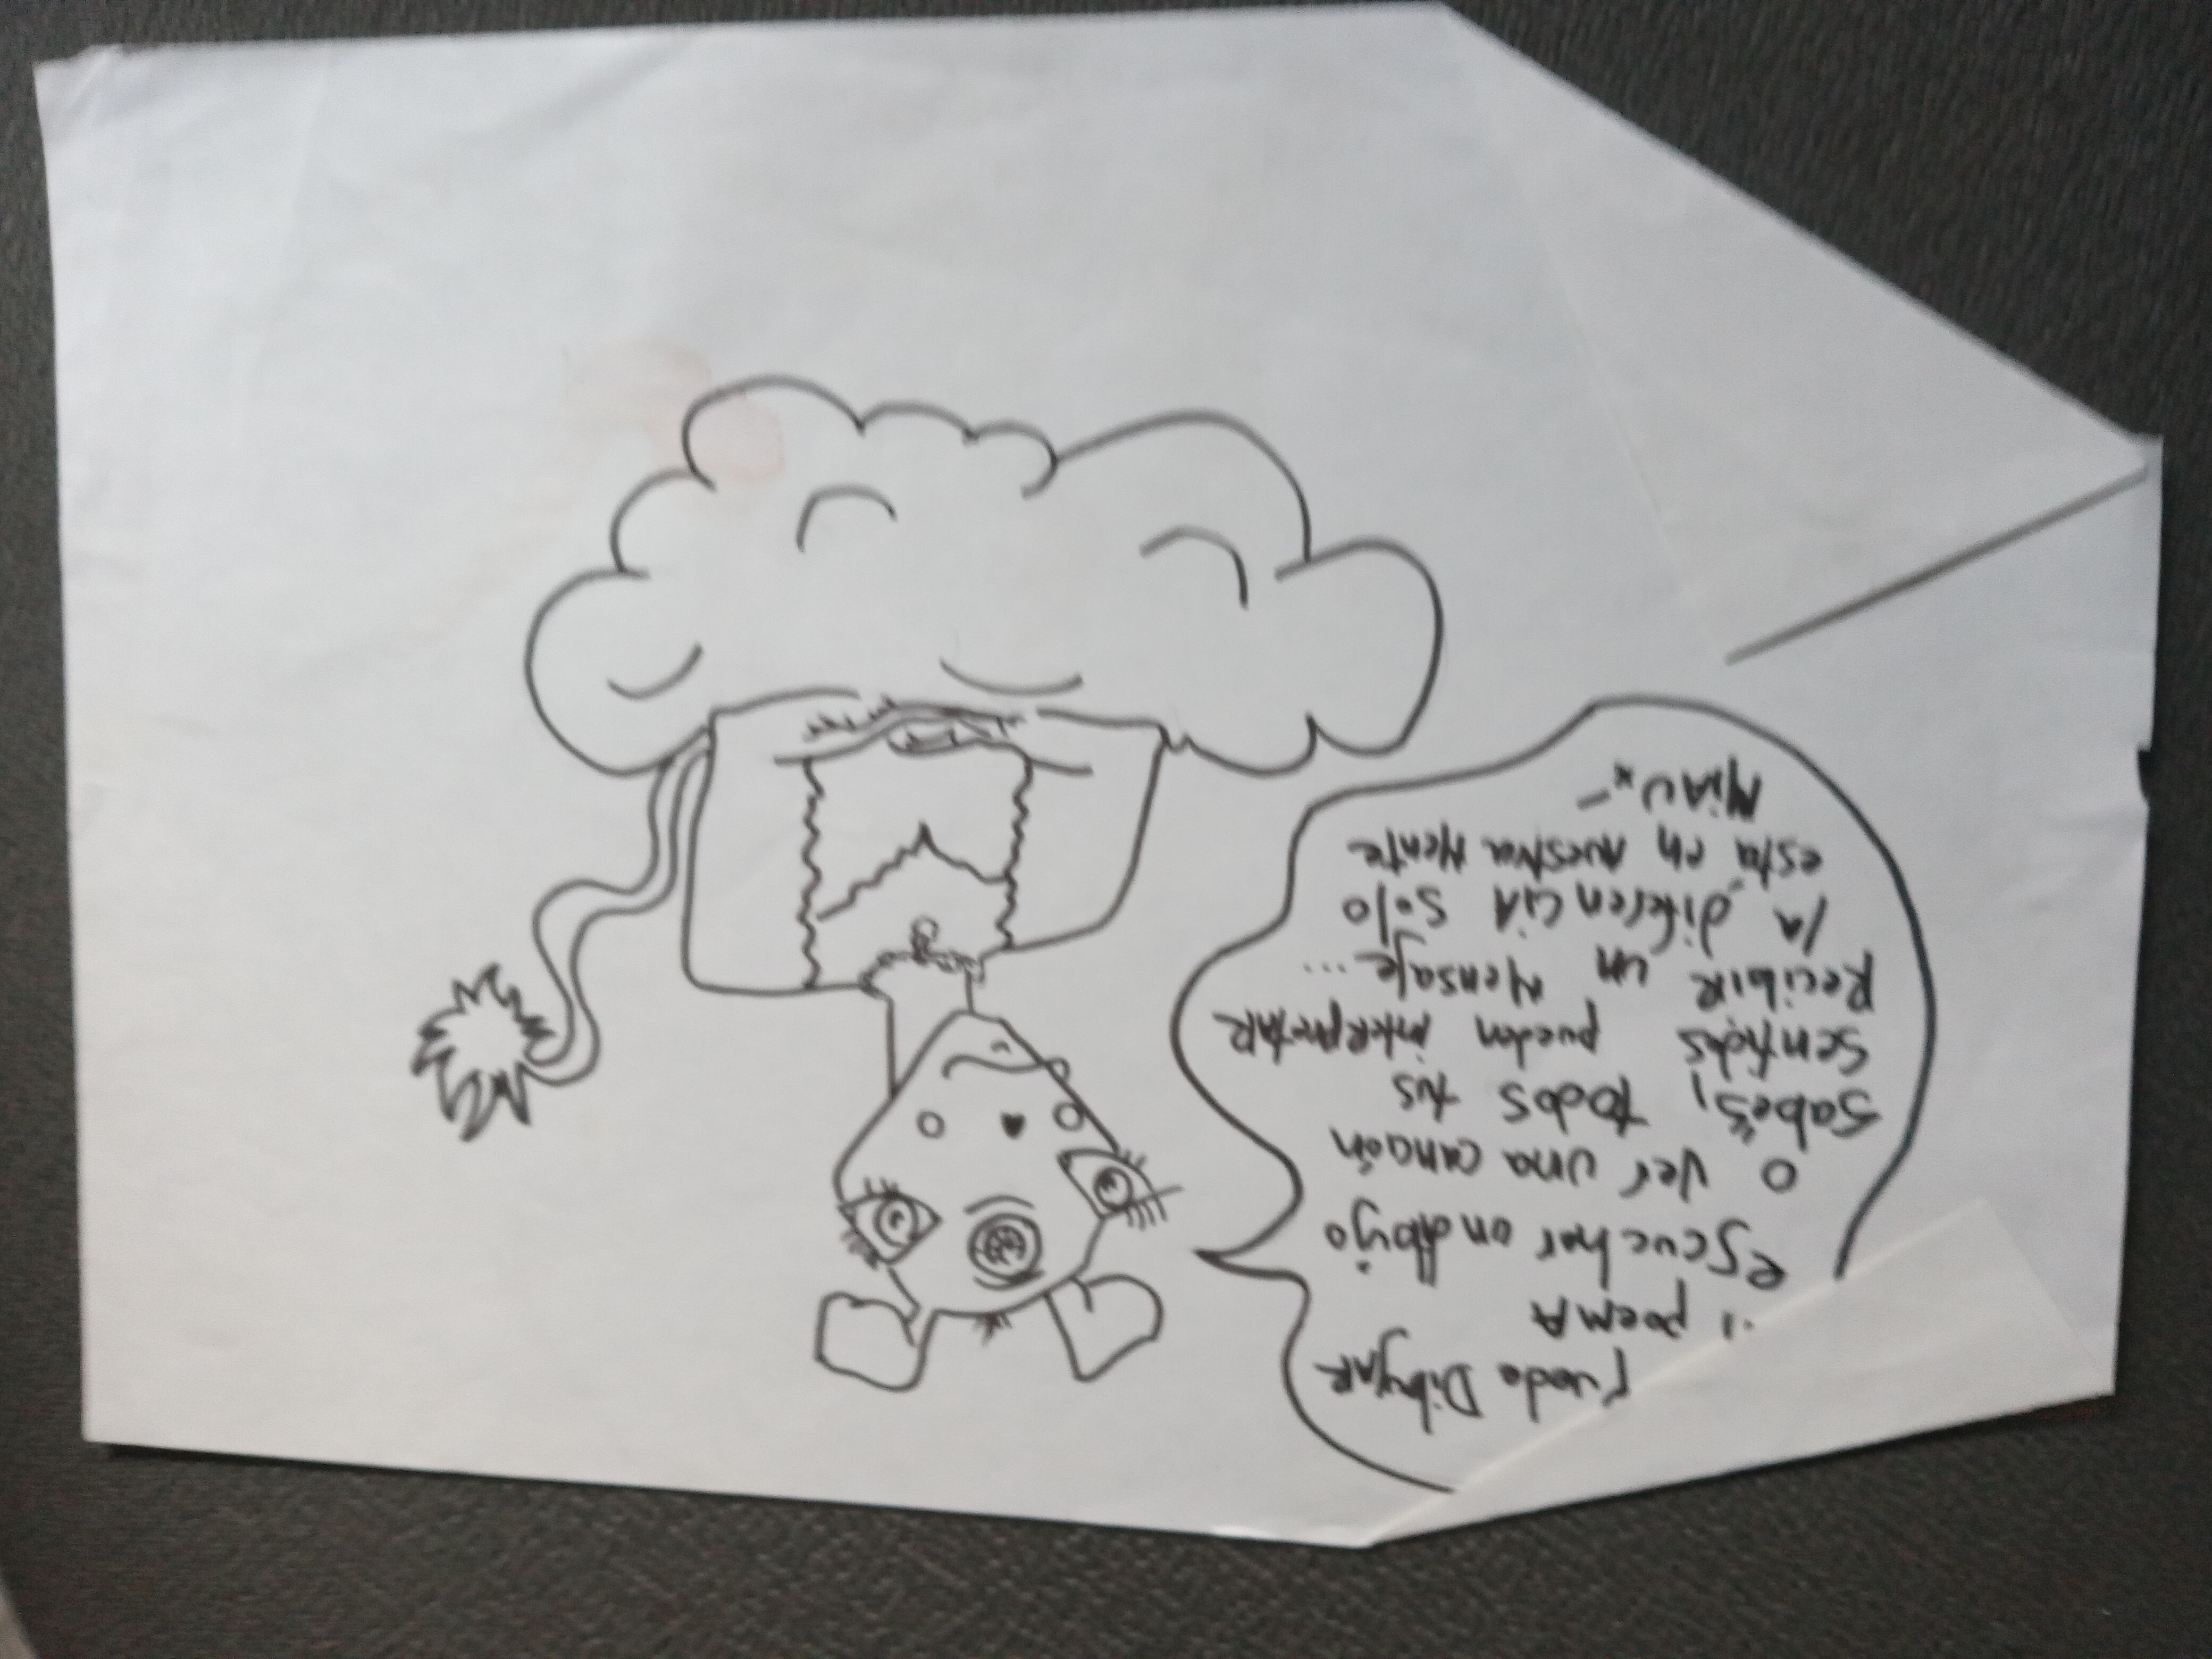 puede DibujAR
poemA
escuchar un dibujo
o ver una canción
sabes, todos tus
sentidos pueden interpretAR
RecibiR un Mensaje...
lA diferenciA solo
está en nuestra Mente
MiAU